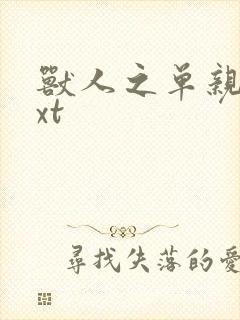 獸人之单親
xt
尋找失落的愛